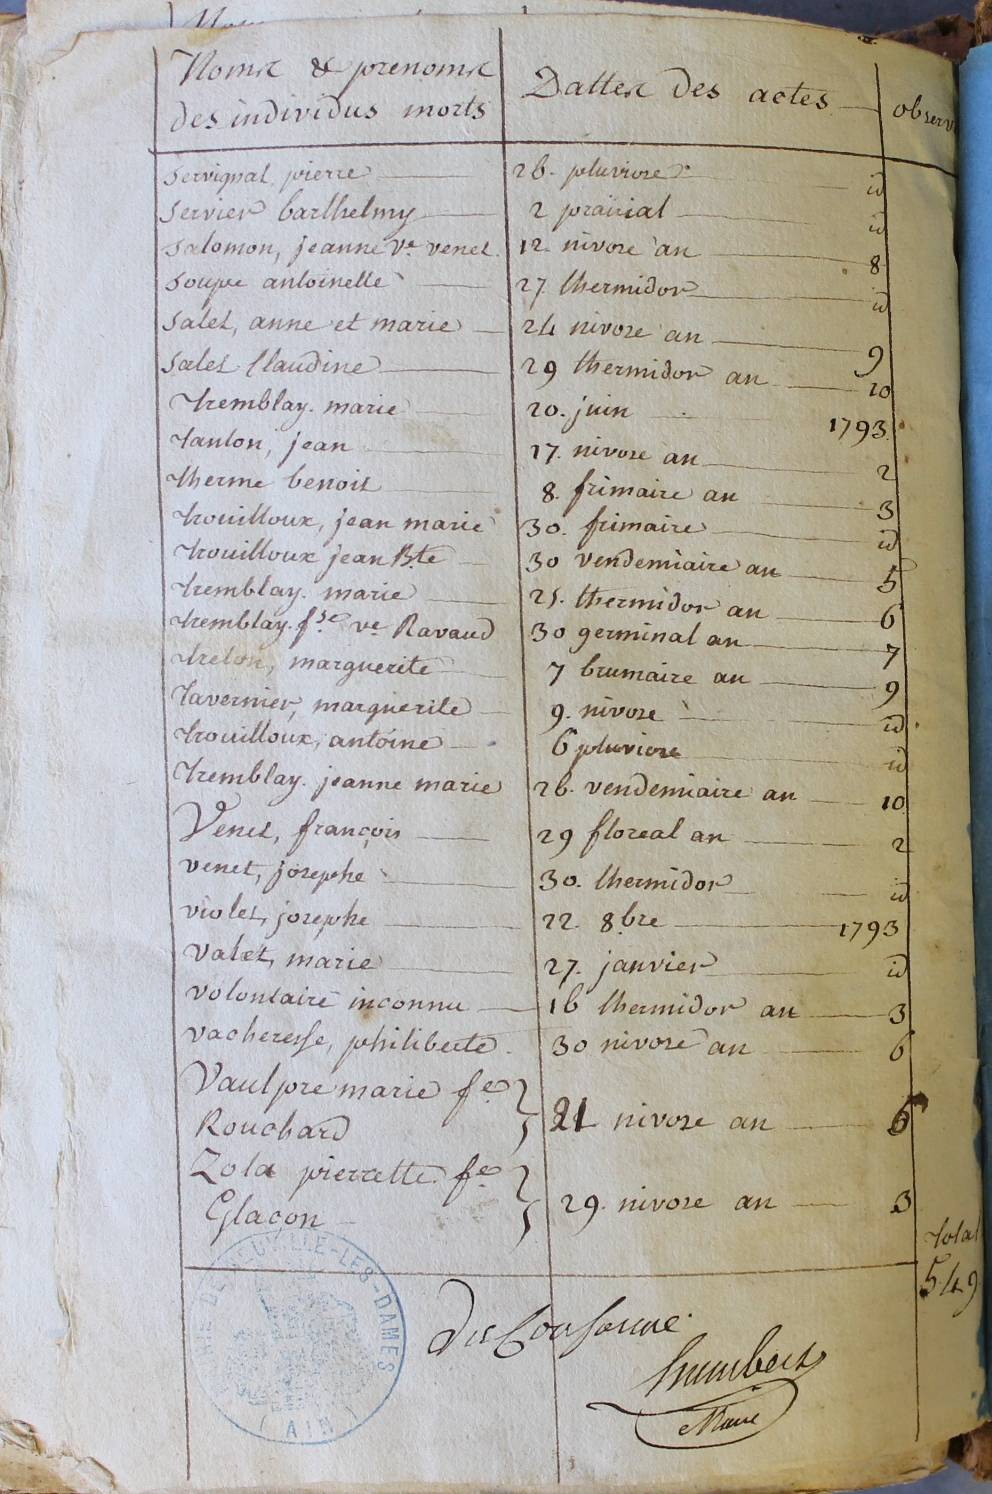 Noms & prenoms Dattes des actes observ
des individus morts
Servignat pierre 26. pluviose id
Servier barthelmy 2 prairial id
Salomon, jeanne Ve venet 12 nivose an 8
Soupe antoinette 27 thermidor id
Salet, anne et marie 24 nivose an 9
Salet Claudine 29 thermidor an 10
Tremblay. marie 20. juin 1793
Tanton, jean 17. nivose an 2
therme benoit 8. frimaire an 3
trouilloux, jean marie 30. frimaire id
trouilloux jean Bte 30 vendemiaire an 5
tremblay. marie 25. thermidor an 6
tremblay. fse ve Ravaud 30 germinal an 7
treton, marguerite 7 brumaire an 9
tavernier, marguerite 9. nivose id
trouilloux, antoine 6 pluviose id
tremblay. jeanne marie 26. vendemiaire an 10
Venet, françois 29 floreal an 2
venet, josephe 30. thermidor id
violet, josephe 22 8bre 1793
valet, marie 27. janvier id
volontaire inconnu 16 thermidor an 3
vacheresse, philiberte 30 nivose an 6
Vaulpre marie fe
Rouchard 21 nivose an 6
Zola pierrette fe
Glacon 29. nivose an 3
total
549
NEUVILLE-LES-DAMES
(AIN)
humbert
Maire